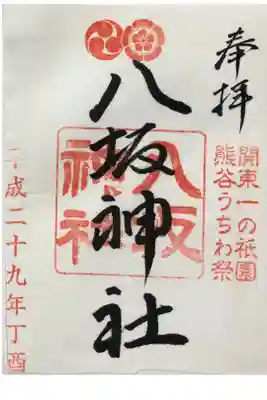 奉拝
関東一の祇園
熊谷うちわ祭
八坂神社
八坂
神社
平成二十九年丁酉